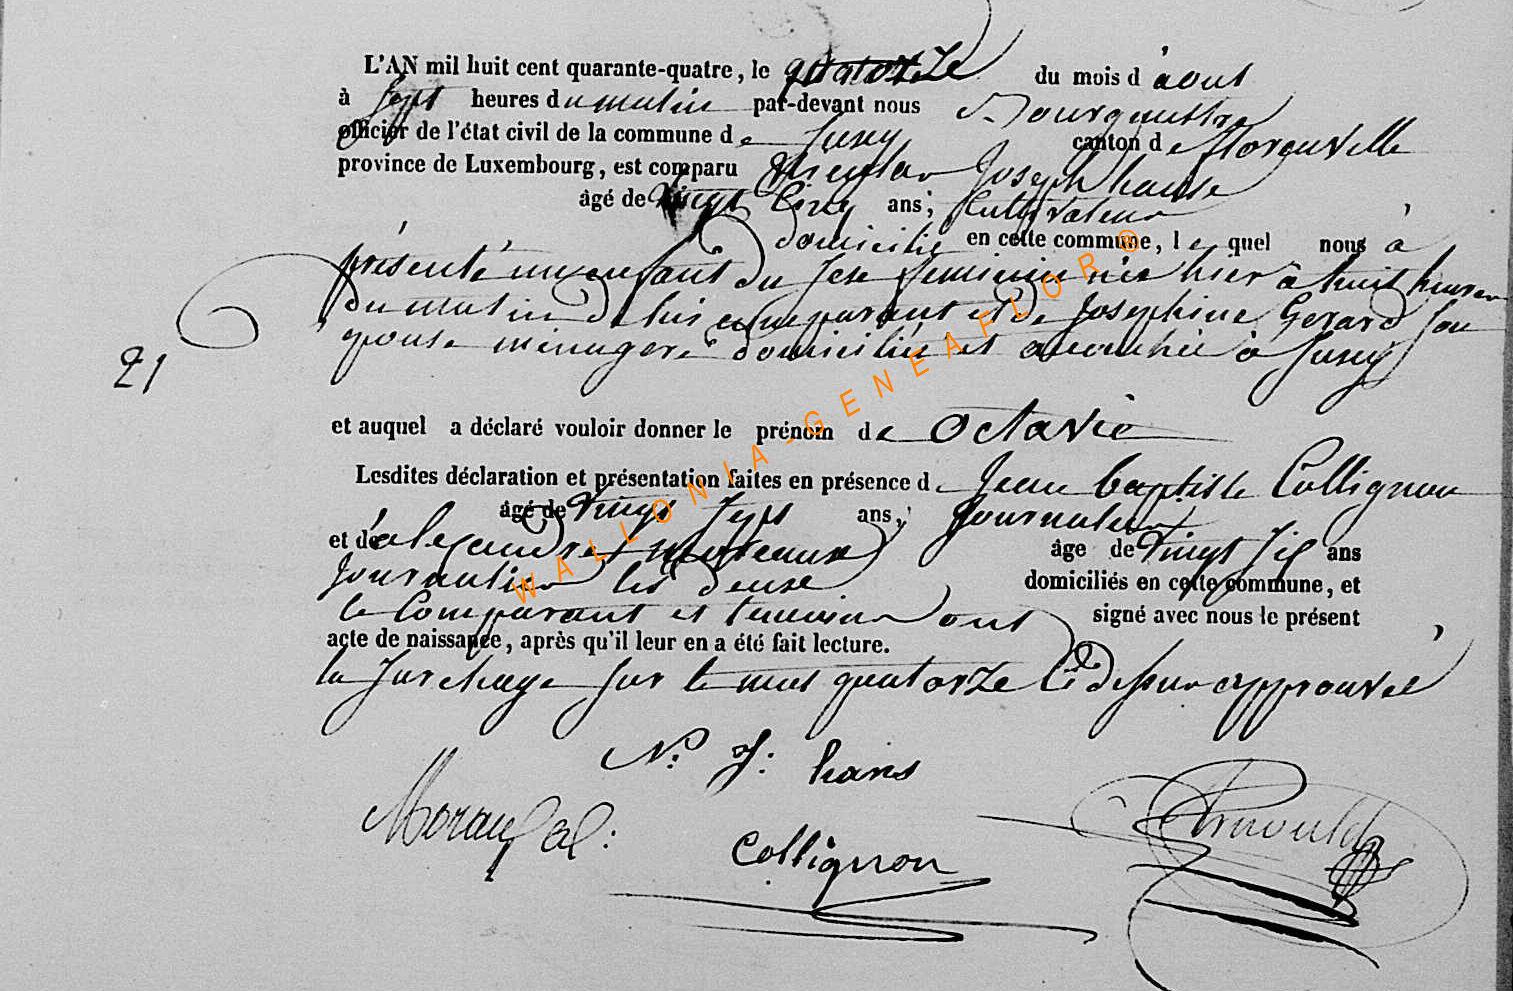 L'AN mil huit cent quarante-quatre, le quatorze du mois d'aout
à sept heures du matin par-devant nous Bourgmestre
officier de l'état civil de la commune de Jusey canton de
province de Luxembourg, est comparu Nicolas Joseph hanse
âgé de vingt cinq ans, Cultivateur
domicilié en cette commune, lequel nous à
présenté un enfant du sexe feminin née hier à huit heures
du matin de lui comparant et de Josephine Gerard son
epouse menagere domiciliée et accouchée à Jusey
21
et auquel a déclaré vouloir donner le prénom de Octavie
Lesdites déclaration et présentation faites en présence de Jean baptiste Collignon
âgé de vingt sept ans, Journalier
et de alexandre moreaux âge de vingt six ans
Journalier les deux domiciliés en cette commune, et
le Comparant et temoins ont signé avec nous le présent
acte de naissance, après qu'il leur en a été fait lecture.
la surcharge sur le mot quatorze ci dessus approuvée
N. J. hans
Moraux al:
Collignon
Arnould
WALLONIA-GENEAFLOR®